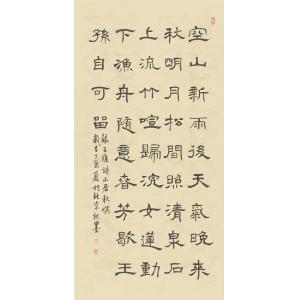 空山新雨後天氣晚來
秋明月松間照清泉石
上流竹喧歸浣女蓮動
下漁舟隨意春芳歇王
孫自可留
錄王維詩山居秋暝